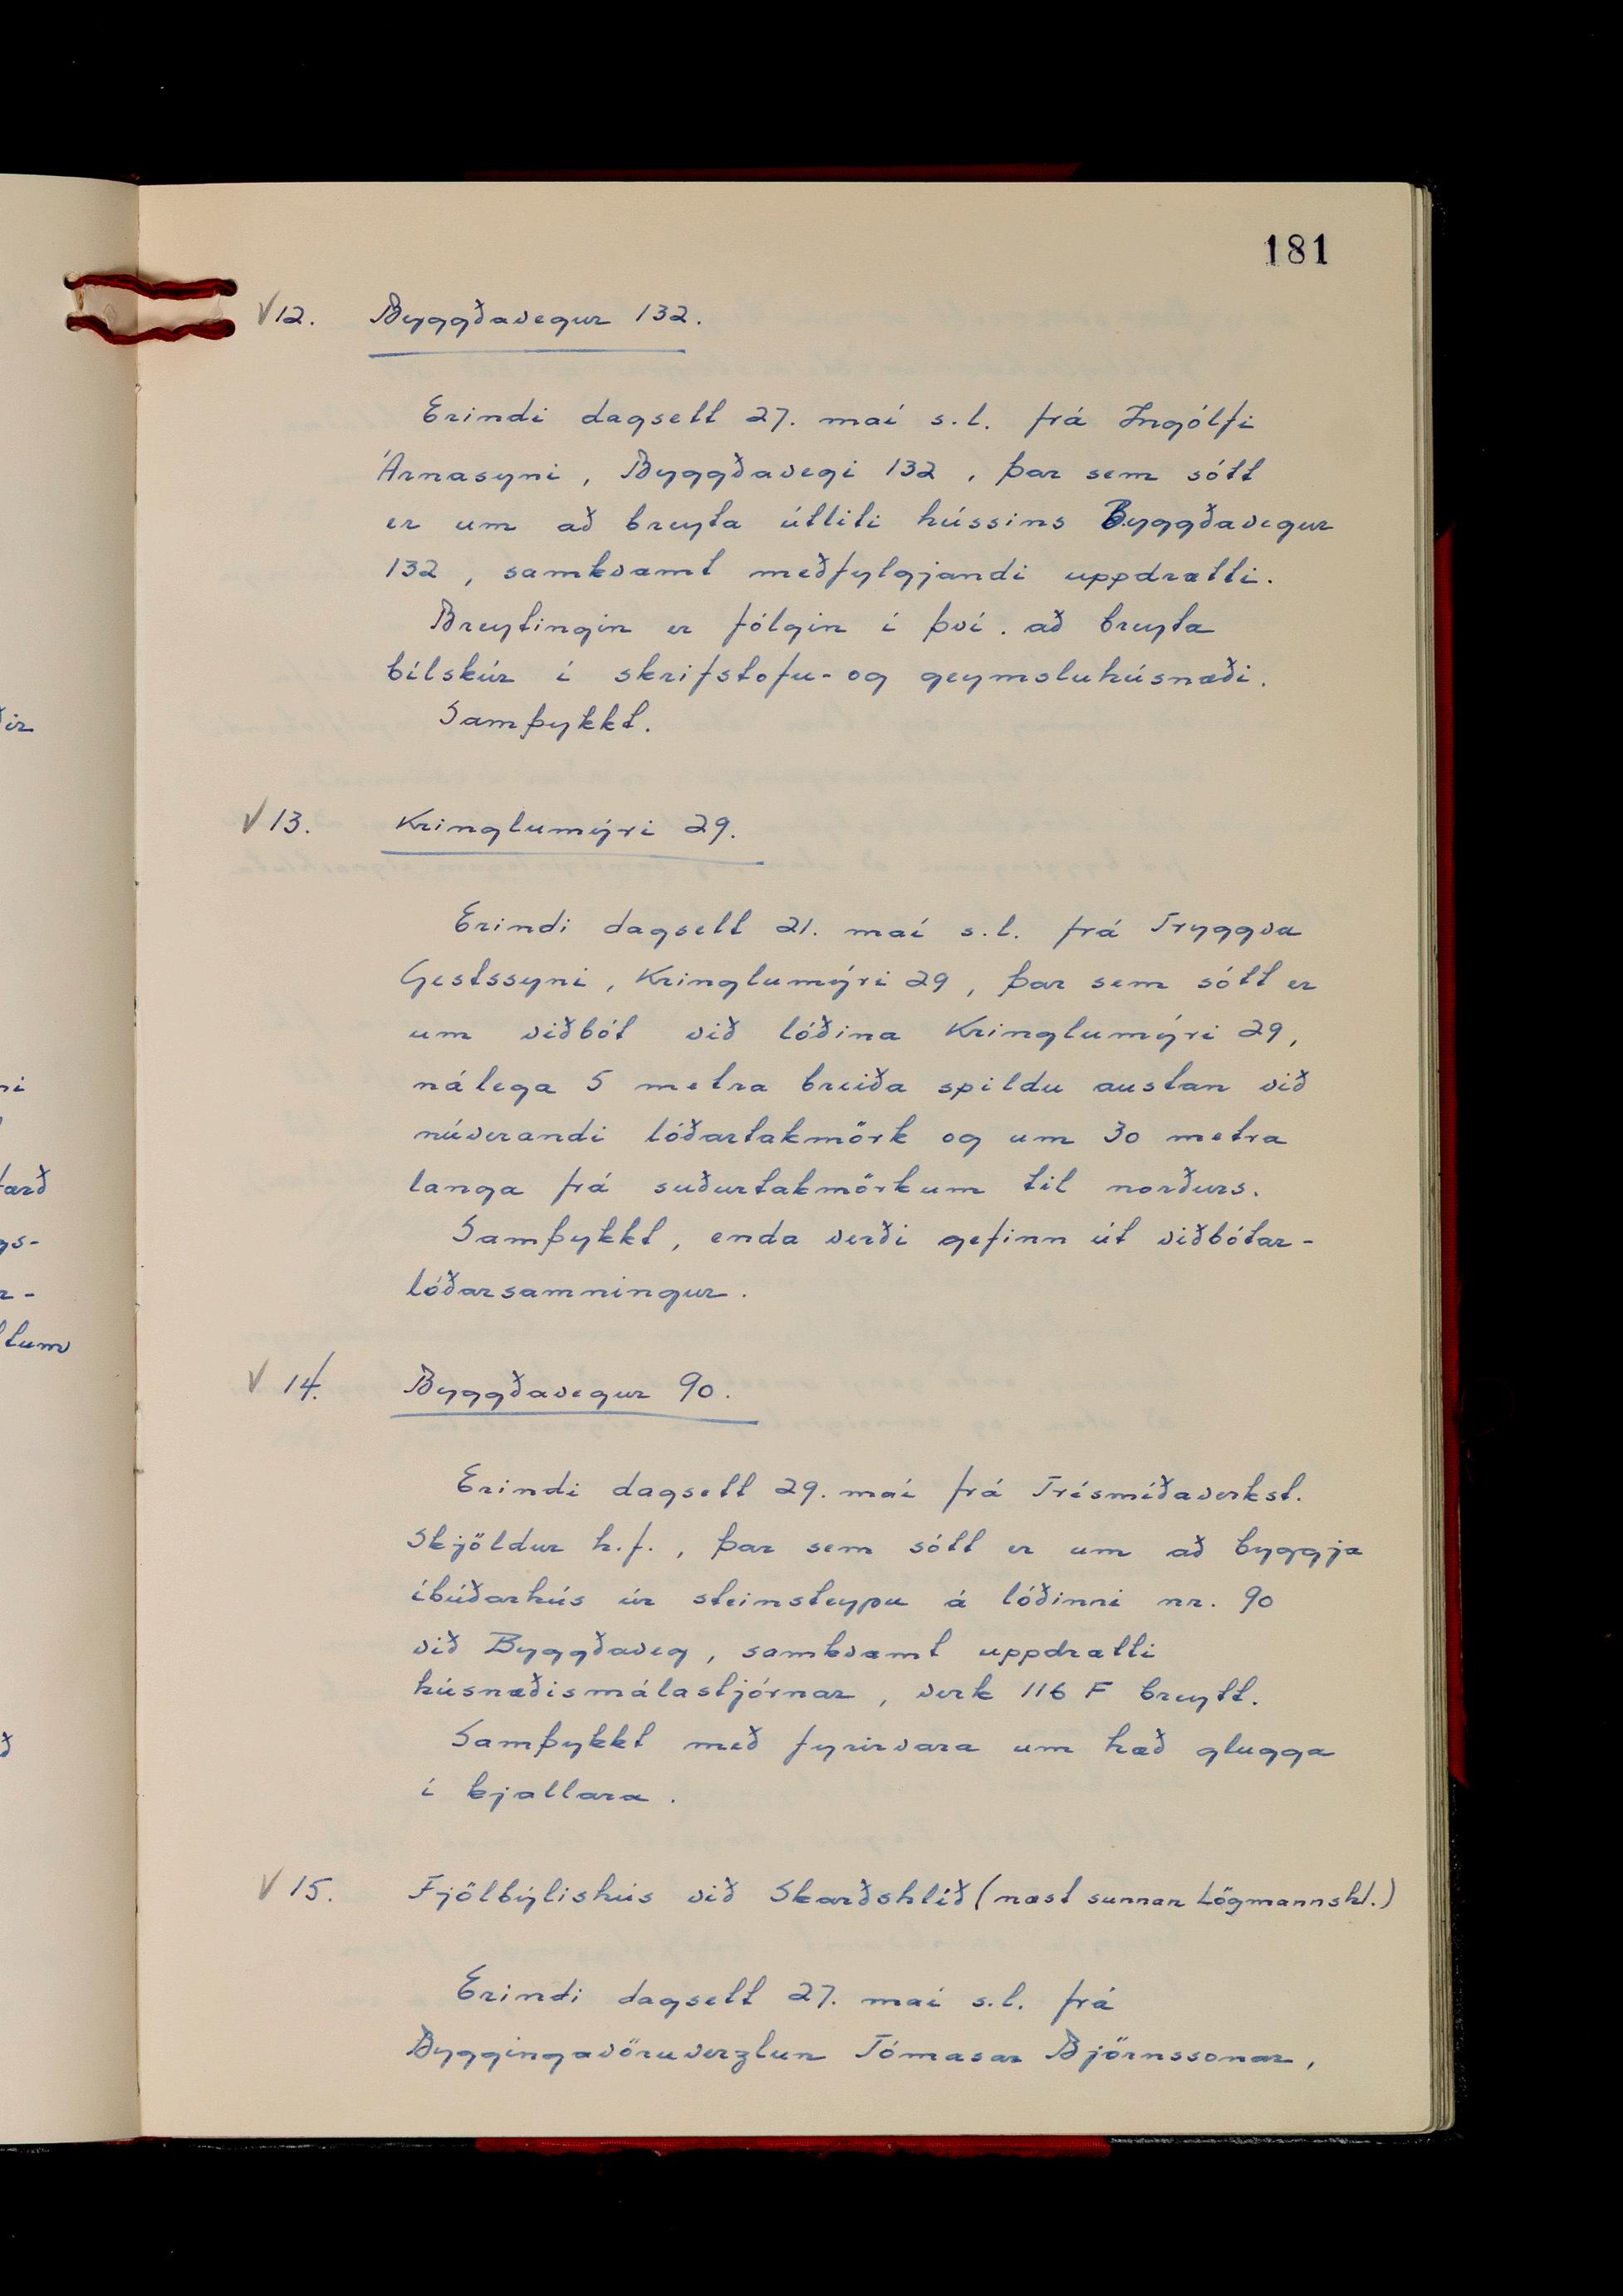 181
√12. Byggðavegur 132.
Erindi dagsett 27. maí s.l. frá Ingólfi
Árnasyni, Byggðavegi 132, þar sem sótt
er um að breyta útliti hússins Byggðavegur
132, samkvæmt meðfylgjandi uppdrætti.
Breytingin er fólgin í því. að breyta
bílskúr í skrifstofu- og geymsluhúsnæði.
Samþykkt.
√13. Kringlumýri 29.
Erindi dagsett 21. maí s.l. frá Tryggva
Gestssyni, Kringlumýri 29, þar sem sótt er
um viðbót við lóðina Kringlumýri 29,
nálega 5 metra breiða spildu austan við
núverandi lóðartakmörk og um 30 metra
langa frá suðurtakmörkum til norðurs.
Samþykkt, enda verði gefinn út viðbótar-
lóðarsamningur.
√ 14. Byggðavegur 90.
Erindi dagsett 29. maí frá Trésmíðaverkst.
Skjöldur h.f., þar sem sótt er um að byggja
íbúðarhús úr steinsteypu á lóðinni nr. 90
við Byggðaveg, samkvæmt uppdrætti
húsnæðismálastjórnar, verk 116 F breytt.
Samþykkt með fyrirvara um hæð glugga
í kjallara.
√ 15. Fjölbýlishús við Skarðshlíð (næst sunnan Lögmannshl.)
Erindi dagsett 27. maí s.l. frá
Byggingavöruverzlun Tómasar Björnssonar,